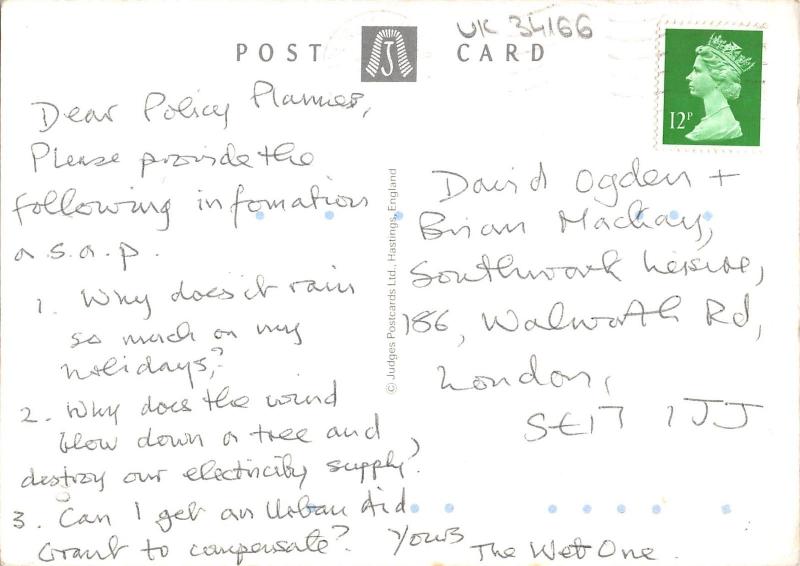 UK 34166
POST CARD
12P
Dear Policy Planner,
Please provide the
following infomation
a.s.a.p.
1. Why does it rain
so much on my
holidays?
2. Why does the wind
blow down a tree and
destroy our electricity supply?
3. Can I get an Urban Aid
Grant to compensate?
Yours
The Wet One.
© Judges Postcards Ltd., Hastings, England
David Ogden +
Brian Mackay,
Southwark Leisure,
186, Walworth Rd,
London,
SE17 1JJ